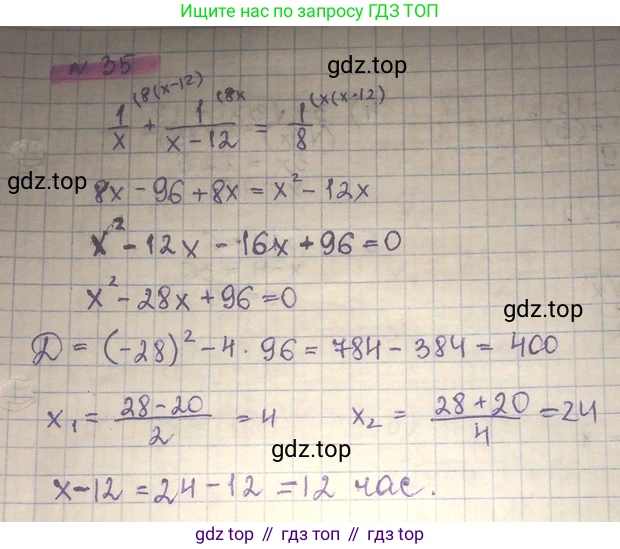 Ищите нас по запросу ГДЗ ТОП
№ 35
gdz.top
1/x ⁽⁸⁽ˣ⁻¹²⁾ + 1/(x-12) ⁽⁸ˣ = 1/8 ⁽ˣ⁽ˣ⁻¹²⁾
gdz.top
8x - 96 + 8x = x² - 12x
x² - 12x - 16x + 96 = 0
x² - 28x + 96 = 0
gdz.top
D = (-28)² - 4 · 96 = 784 - 384 = 400
x₁ = (28-20)/2 = 4 x₂ = (28+20)/4 = 24
gdz.top
x-12 = 24-12 = 12 час.
gdz.top // гдз.топ // гдз топ